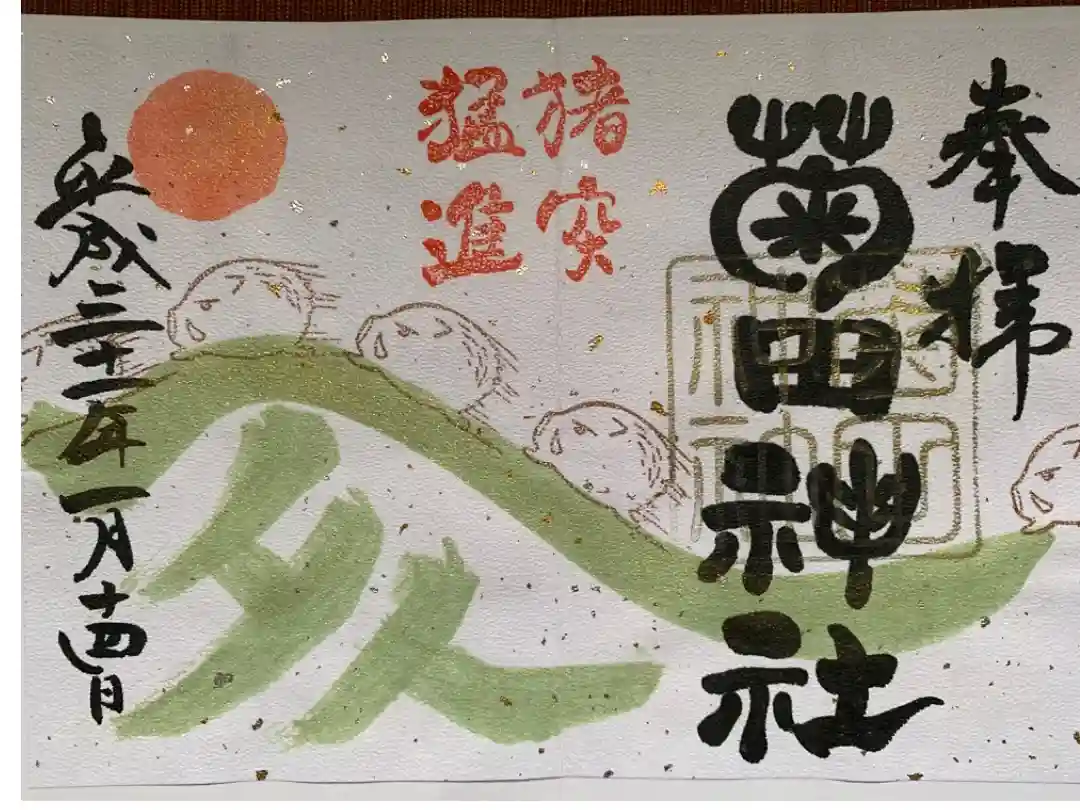 奉拝
菊田神社
猪突
猛進
亥
平成三十一年一月十四日